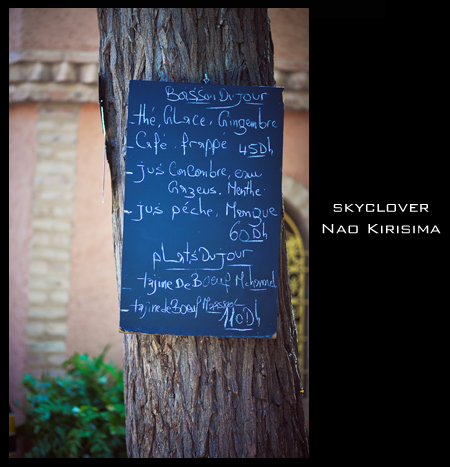 Boisson Du Jour
- thé, Glace, Gingembre
- Café frappe 45Dh
- jus Concombre, eau
Gazeus, Menthe.
- jus pêche, Mangue
60Dh
plats Du jour
- tajine De Boeuf
- tajine de Boeuf
110Dh
SKYCLOVER
NAO KIRISIMA